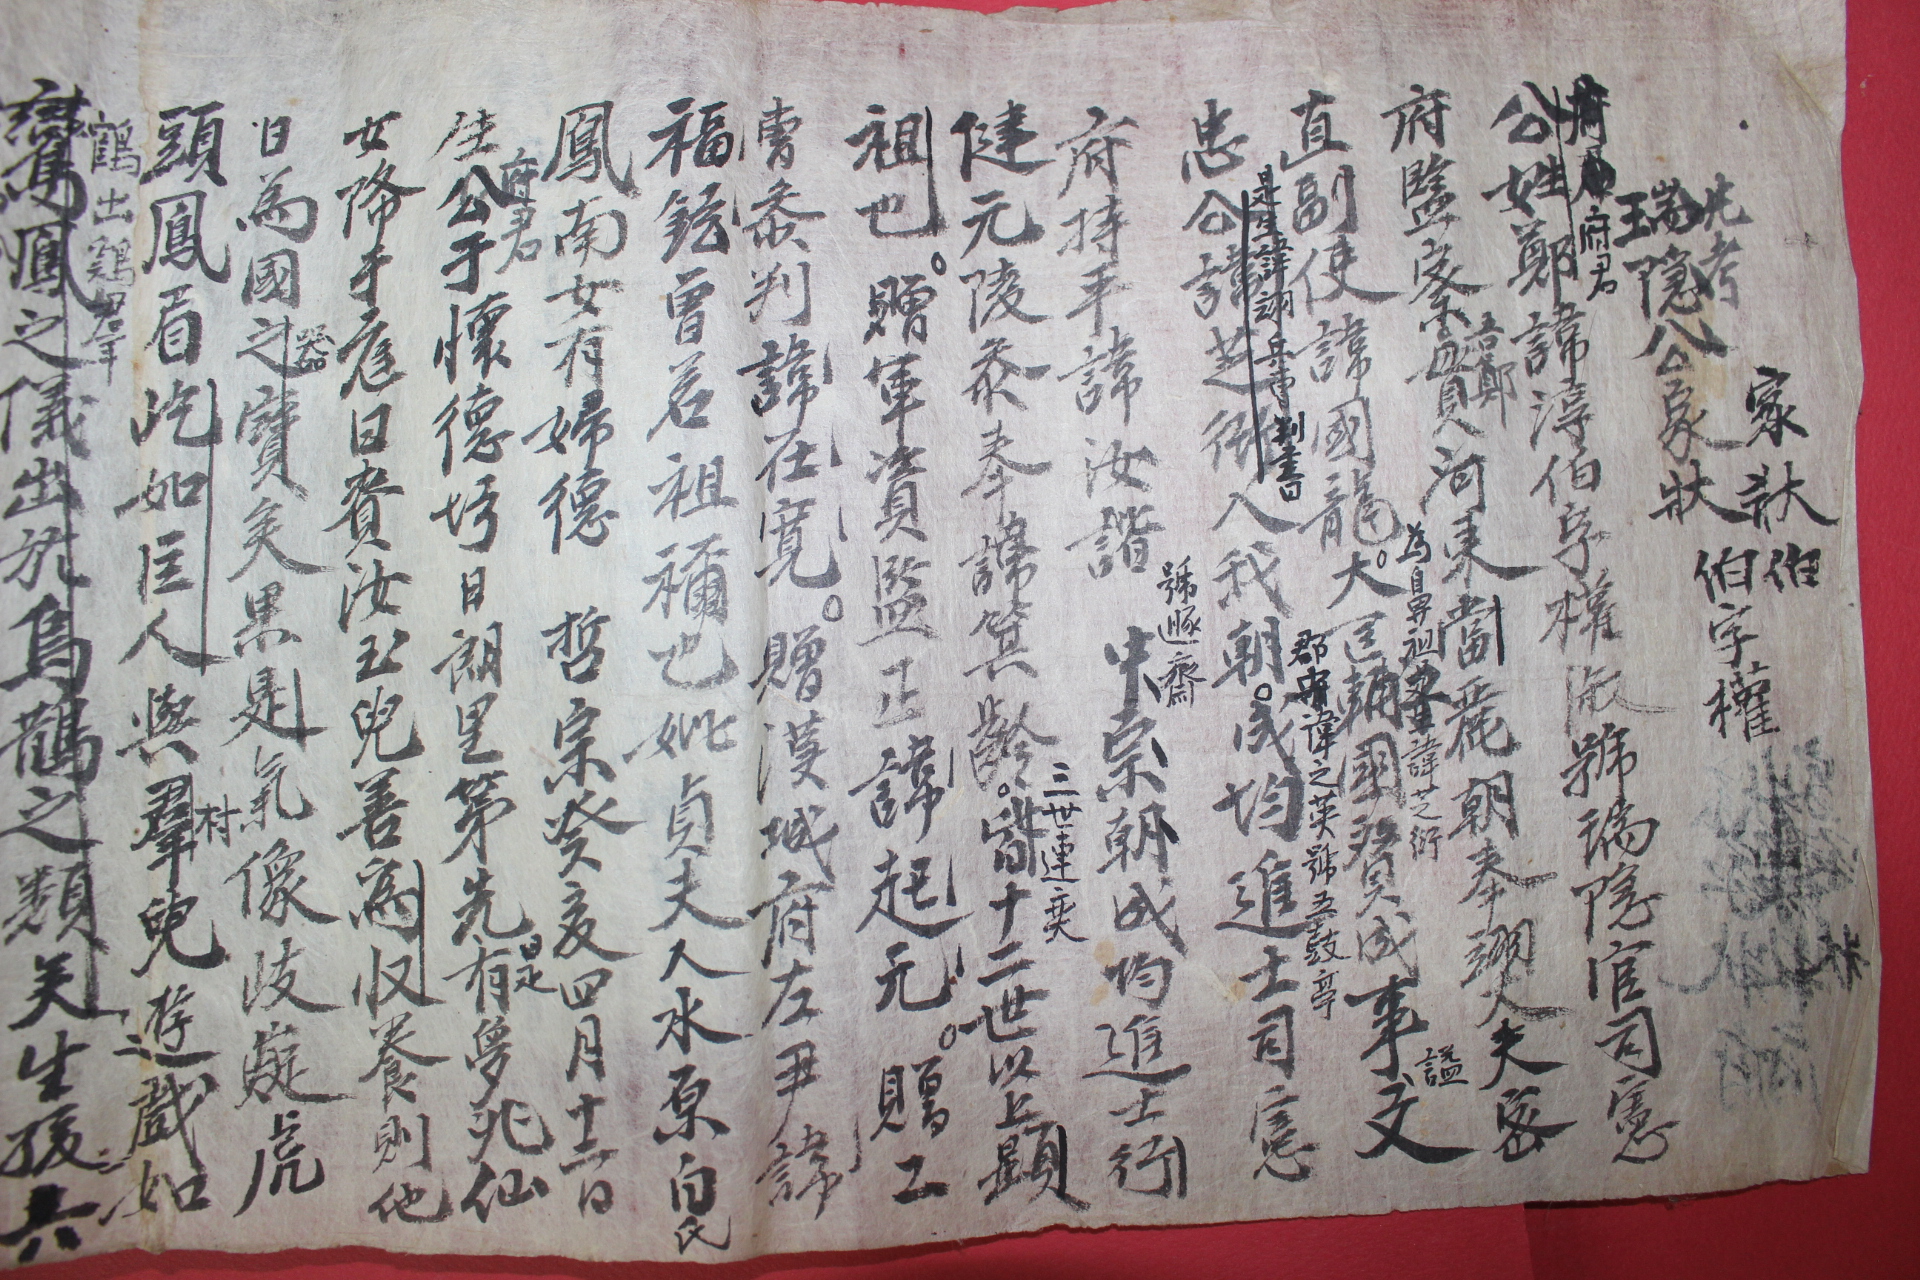 家狀
伯
先考
瑞隱公家狀
伯字權
府君
公姓鄭諱淳伯字權淑號瑞隱官司憲
府監察
吾鄭
貫河東當麗朝奉翊大夫密
為鼻祖
諱芝衍
直副使諱國龍大匡輔國贊成事文
諡
郡
諱之英號五鼓亭
忠公諱芝衍入我朝成均進士司憲
是生諱翊
判書
府持平諱汝諧
號遯齋
中宗朝成均進士行
健元陵參奉諱箕齡皆十二世以上顯
三世連奕
祖也贈軍資監正諱起元贈工
曹參判諱在寬贈漢城府左尹諱
福鉉曾若祖禰也妣貞夫人水原白氏
鳳南女有婦德 哲宗癸亥四月十二日
生公于懷德坊日朗里第先有夢兆仙
府君
女降手
日賚汝玉兒善為收養則他
日為國之寶矣果是氣像歧嶷虎
器
頭鳳眉屹如巨人與羣兒遊戲如
村
鶴出鷄羣
鸞鳳之儀出於烏鵲之類矣生孩六